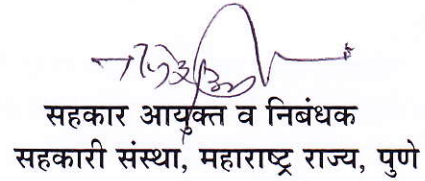 सहकार आयुक्त व निबंधक
सहकारी संस्था, महाराष्ट्र राज्य, पुणे